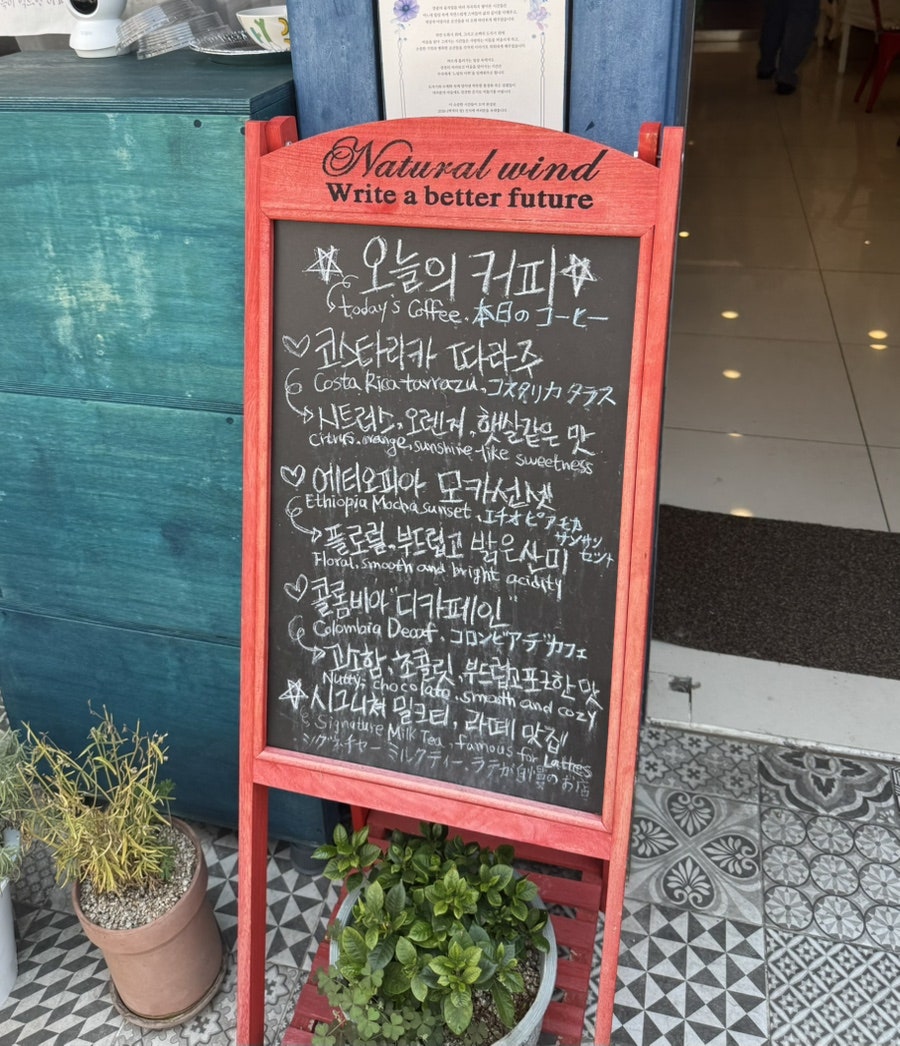 Natural wind
Write a better future
오늘의 커피
today's Coffee. 本日の コーヒー
코스타리카 따라주
Costa Rica tarrazu, コスタリカ タラス
시트러스, 오렌지, 햇살같은 맛
citrus, orange, sunshine-like sweetness
에티오피아 모카선셋
Ethiopia Mocha sunset, エチオピア モカ
サンサン
セント
플로럴, 부드럽고 밝은산미
Floral, smooth and bright acidity
콜롬비아 "디카페인"
Colombia Decaf. コロンビア デカフェ
고소함, 초콜릿, 부드럽고포근한 맛
Nutty, chocolate, smooth and cozy
시그니쳐 밀크티, 라떼 맛집
Signature Milk Tea, famous for Lattes
シグネチャー ミルクティー, ラテが自慢のお店